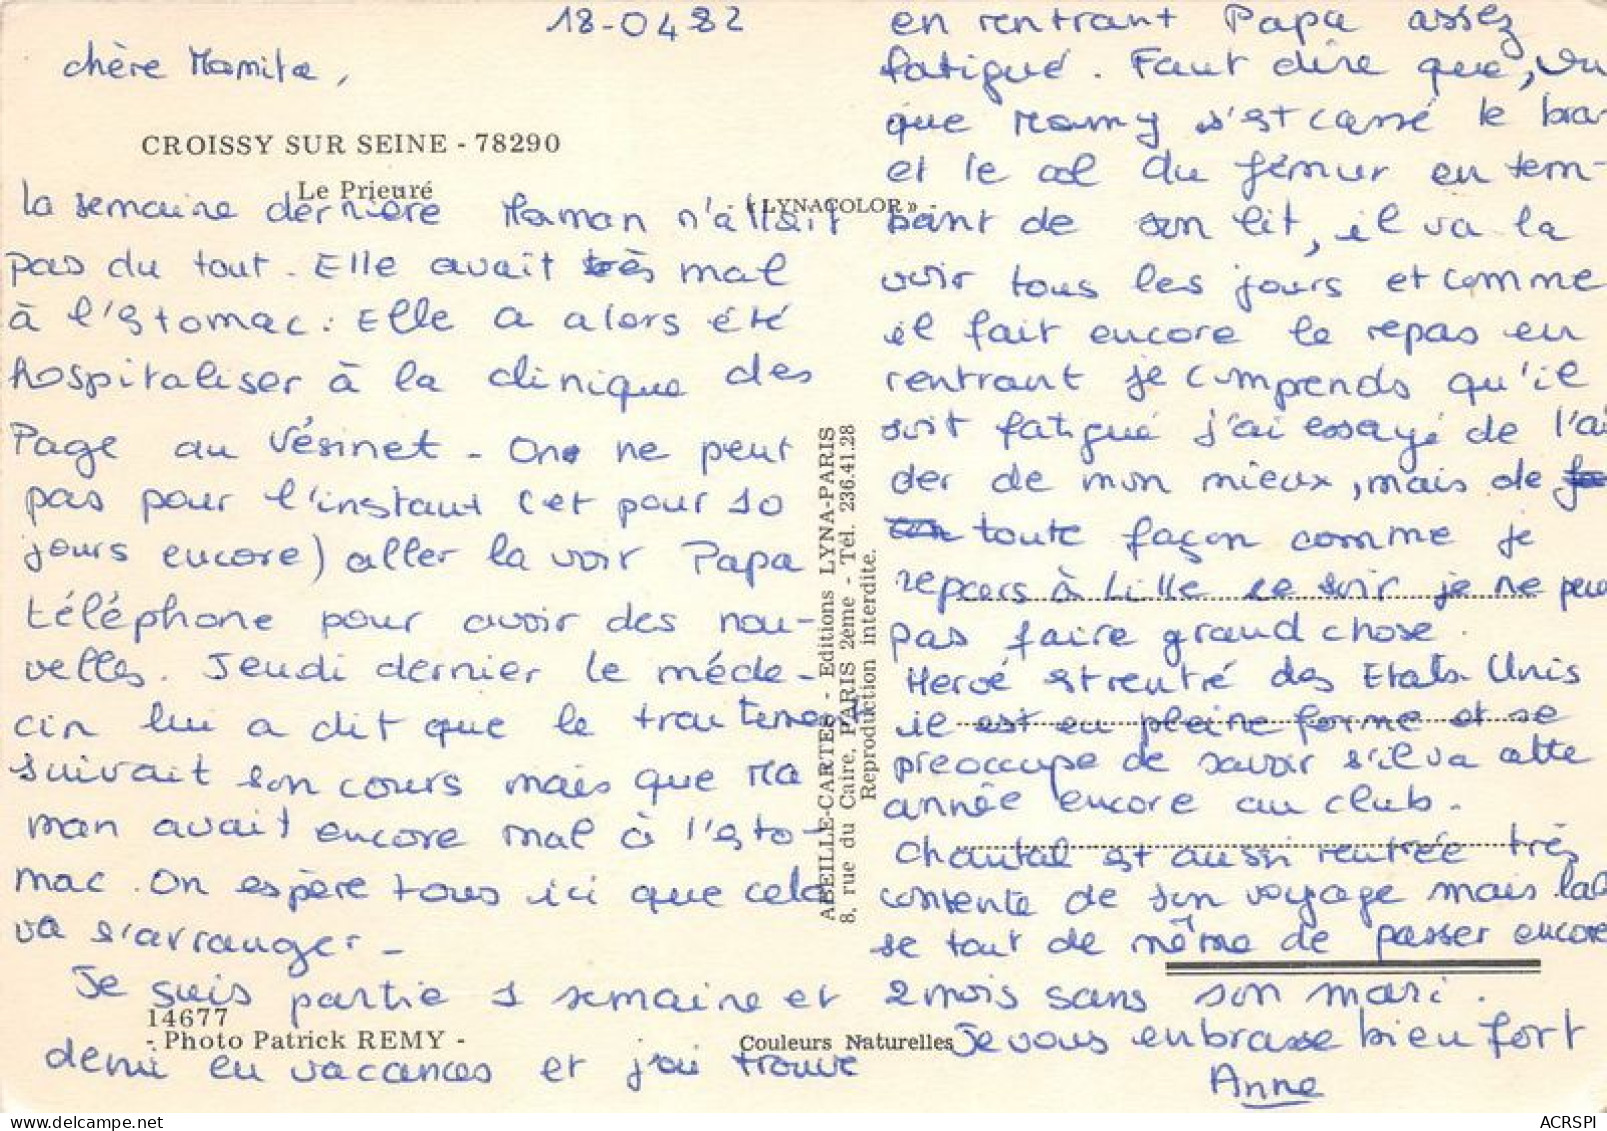 18-04-82
chère Mamita,
CROISSY SUR SEINE - 78290
Le Prieuré
« LYNACOLOR » -
la semaine dernière Maman n'allait
pas du tout. Elle avait très mal
à l'estomac. Elle a alors été
hospitaliser à la clinique des
Page au Vésinet - On ne peut
pas pour l'instant (et pour 10
jours encore) aller la voir Papa
téléphone pour avoir des nou-
velles. Jeudi dernier le méde-
cin lui a dit que le traitement
suivait son cours mais que Ma
man avait encore mal à l'esto-
mac. On espère tous ici que cela
va s'arranger -
Je suis partie 1 semaine et
14677
- Photo Patrick REMY -
Couleurs Naturelles
demi en vacances et j'ai trouvé
ABEILLE-CARTES - Editions LYNA-PARIS
8, rue du Caire, PARIS 2ème - Tél. 236.41.28
Reproduction interdite.
en rentrant Papa assez
fatigué. Faut dire que, vu
que Mamy s'est cassé le bras
et le col du fémur en tom-
bant de son lit, il va la
voir tous les jours et comme
il fait encore le repas en
rentrant je comprends qu'il
soit fatigué j'ai essayé de l'ai
der de mon mieux, mais de
toute façon comme je
repars à Lille ce soir je ne peux
pas faire grand chose.
Hervé est rentré des Etats-Unis
il est en pleine forme et se
preoccupe de savoir s'il va cette
année encore au club.
Chantal est aussi rentrée très
contente de son voyage mais
se tout de même de passer encore
2 mois sans son mari.
Je vous embrasse bien fort
Anne
ACRSPI